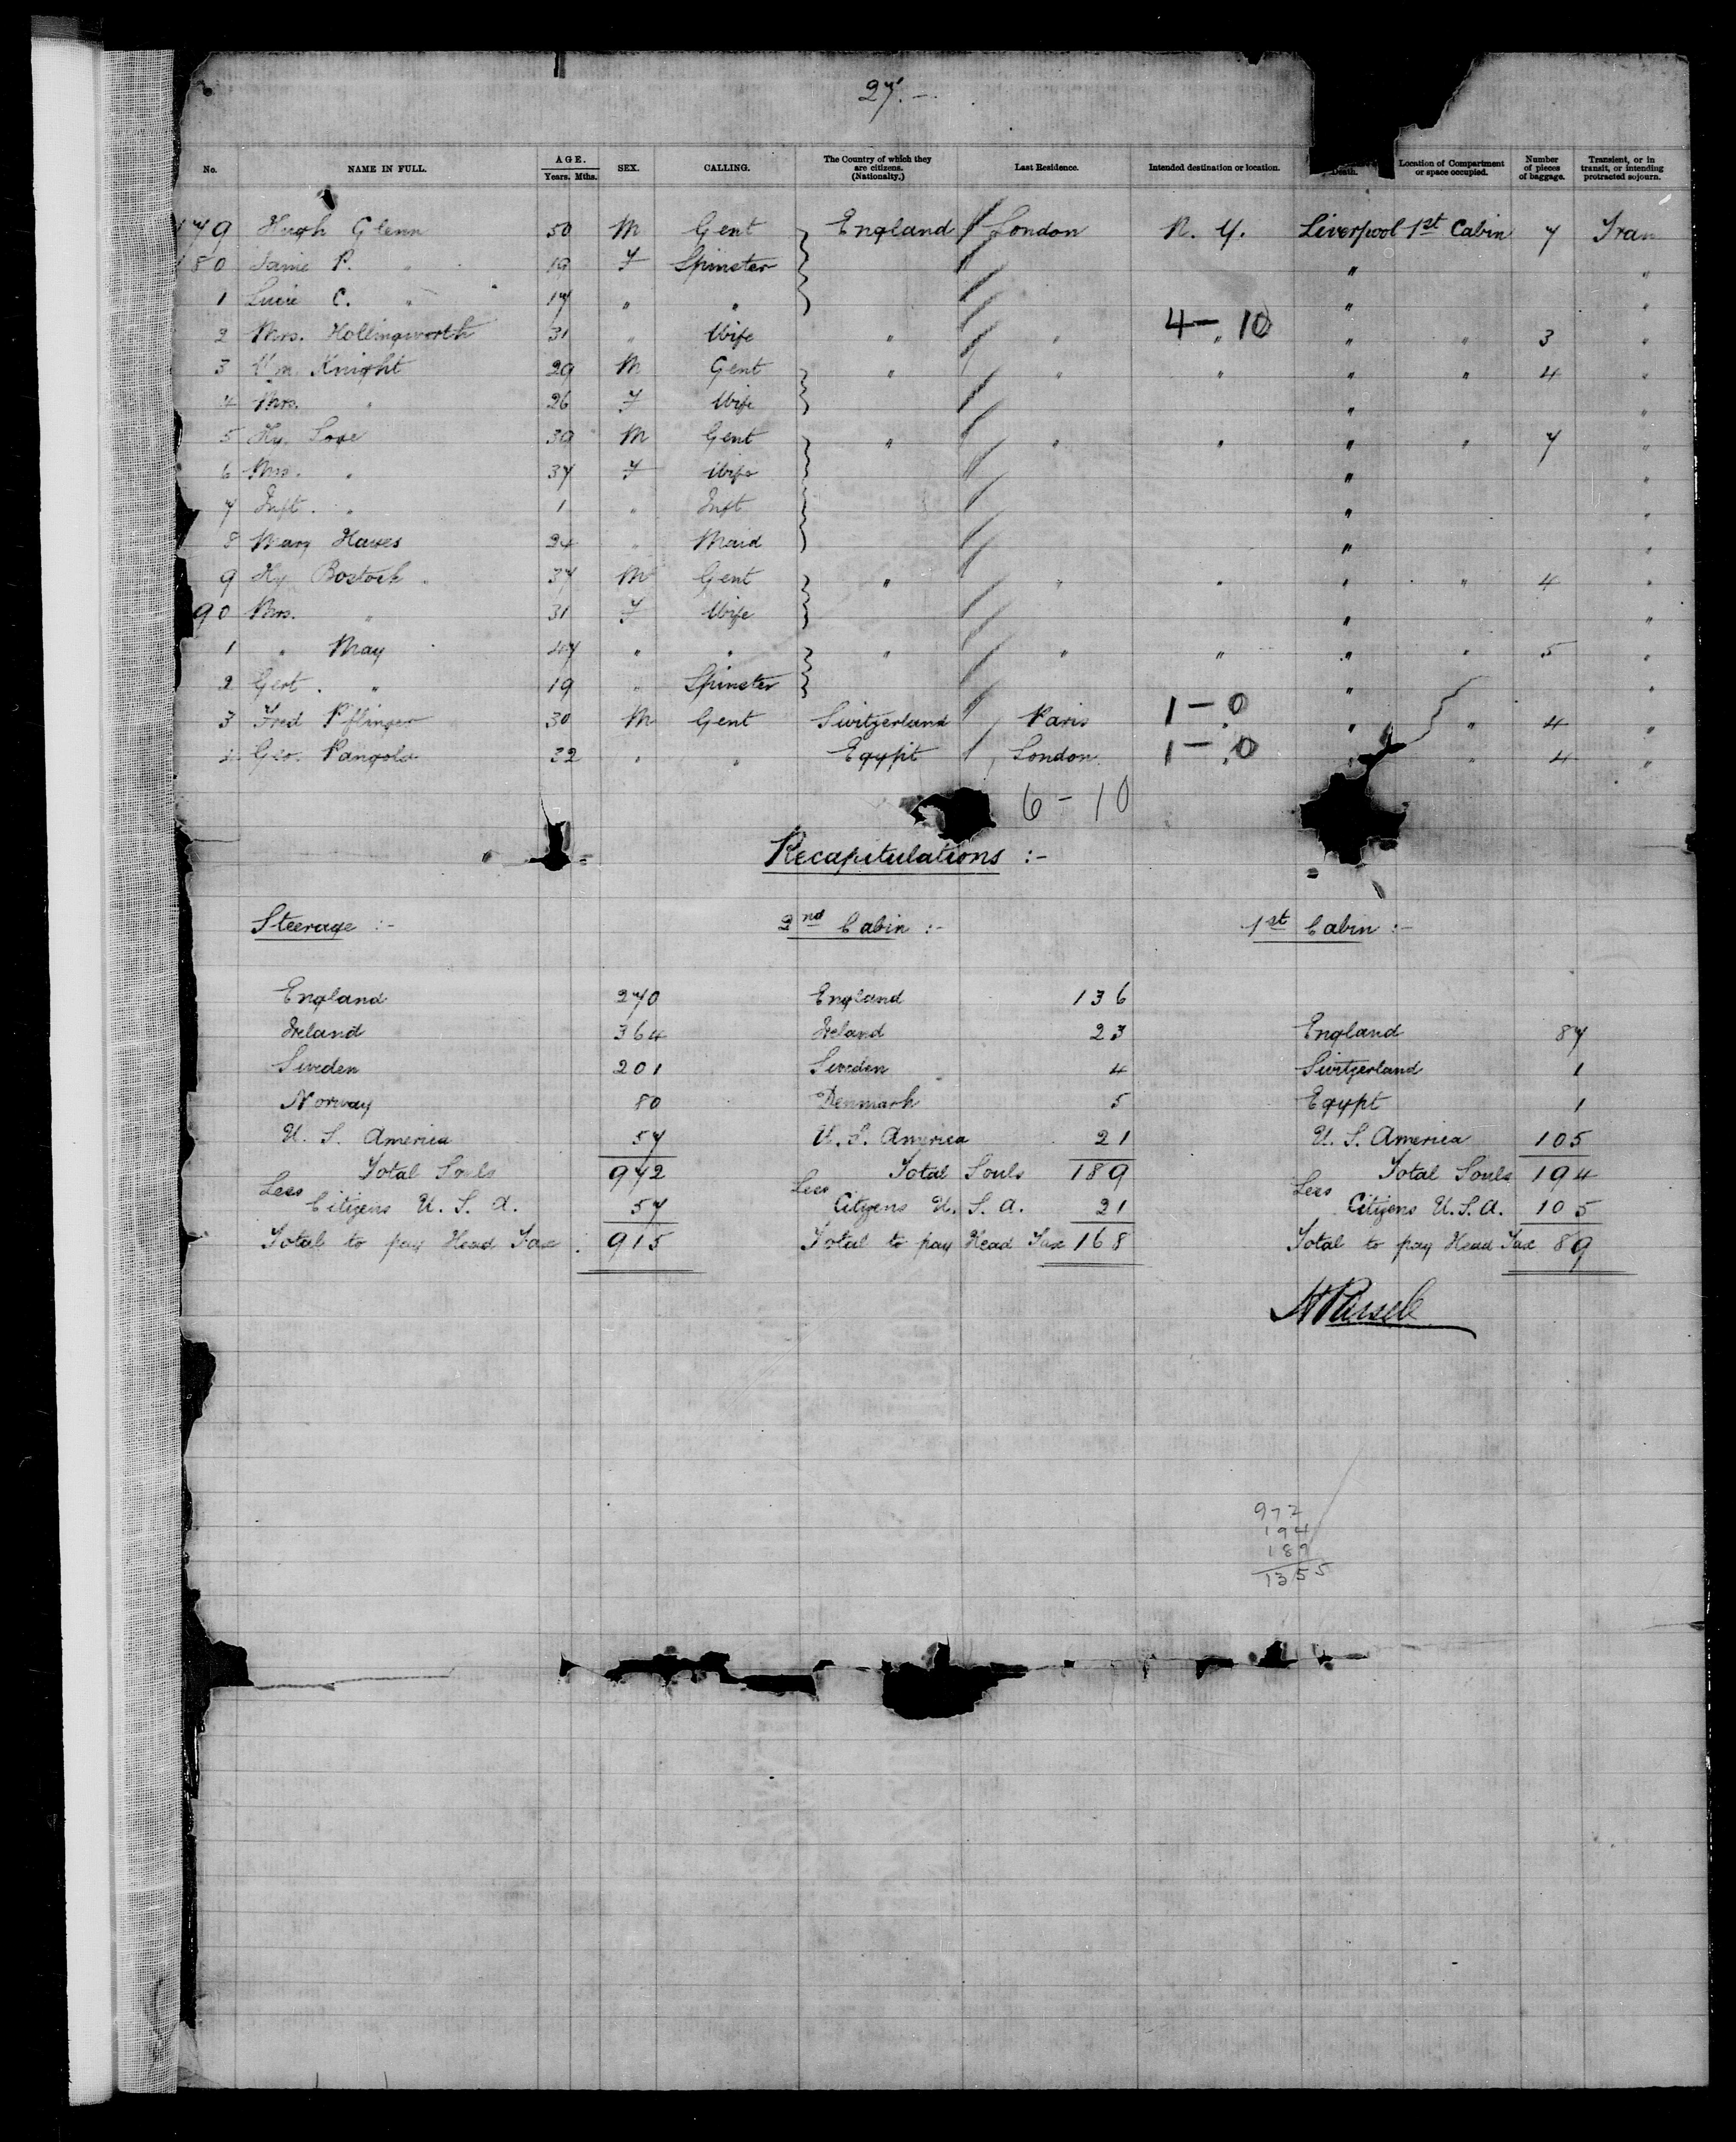 27. —
No. NAME IN FULL. AGE. Years. Mths. SEX. CALLING. The Country of which they are citizens. (Nationality.) Last Residence. Intended destination or location. Death. Location of Compartment or space occupied. Number of pieces of baggage. Transient, or in transit, or intending protracted sojourn.
179 Hugh Glenn 50 M Gent England London N. Y. Liverpool 1st Cabin 7 Tran
180 P. " 19 F Spinster " "
1 C. " 17 " " " "
4 — 10
2 Mrs. Hollingworth 31 " Wife " " " " " 3 "
3 Wm Knight 29 M Gent " " " " " 4 "
4 Mrs. " 26 F Wife " "
5 Hy. Love 39 M Gent " " " " " 7 "
6 Mrs. " 37 F Wife " "
7 Inft. " 1 " Inft " "
8 Mary Hawes 24 " Maid " "
9 Hy. Bostock 37 M Gent " " " " " 4 "
90 Mrs. " 31 F Wife " "
1 " May 47 " " " " " " " 5 "
2 Gert. " 19 " Spinster " "
1 — 0
3 Fred Pflinger 30 M Gent Switzerland Paris " " " 4 "
1 — 0
4 Geo. Pangolo 32 " " Egypt London " " " 4 "
6 - 10
Recapitulations :-
Steerage :- 2nd Cabin :- 1st Cabin :-
England 270 England 136
Ireland 364 Ireland 23 England 87
Sweden 201 Sweden 4 Switzerland 1
Norway 80 Denmark 5 Egypt 1
U. S. America 57 U. S. America 21 U. S. America 105
Total Souls 972 Total Souls 189 Total Souls 194
Less Citizens U. S. A. 57 Less Citizens U. S. A. 21 Less Citizens U.S.A. 105
Total to pay Head Tax. 915 Total to pay Head Tax 168 Total to pay Head Tax 89
972
194
189
1355